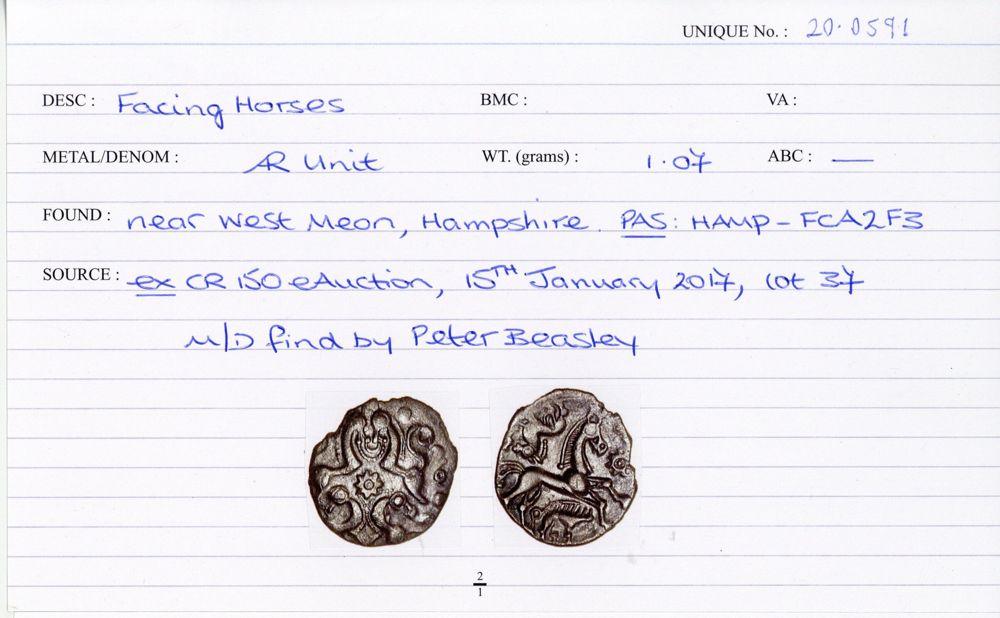 UNIQUE No. : 20·0591
DESC : Facing Horses BMC : VA :
METAL/DENOM : AR Unit WT. (grams) : 1·07 ABC : —
FOUND : near West Meon, Hampshire. PAS: HAMP-FCA2F3
SOURCE : ex CR 150 eAuction, 15TH January 2017, lot 37
M/D find by Peter Beasley
2
1